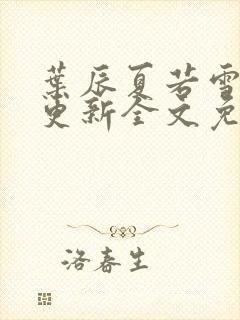 葉辰夏若雪
更新全文免
洛春生